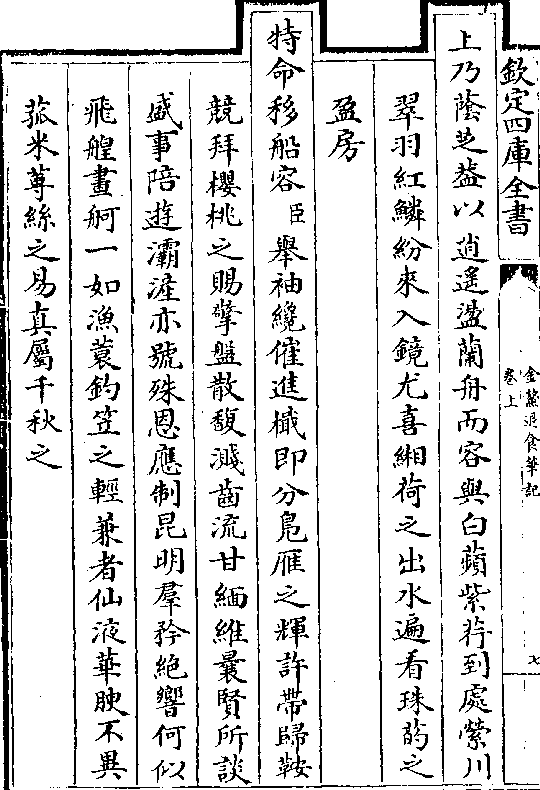 欽定四庫全書
金鰲退食筆記
卷上
七
上乃蔭芝葢以逍遙盪蘭舟而容與白蘋紫荇到處縈川
翠羽紅鱗紛來入鏡尤喜緗荷之出水遍看珠菂之
盈房
特命移船容臣舉袖纔催進檝即分鳬雁之輝許帶歸鞍
競拜櫻桃之賜擎盤散馥濺齒流甘緬維曩賢所談
盛事陪遊灞滻亦號殊恩應制昆明羣矜絕響何似
飛艎畫舸一如漁蓑釣笠之輕兼者仙液華腴不異
菰米蓴絲之易真屬千秋之